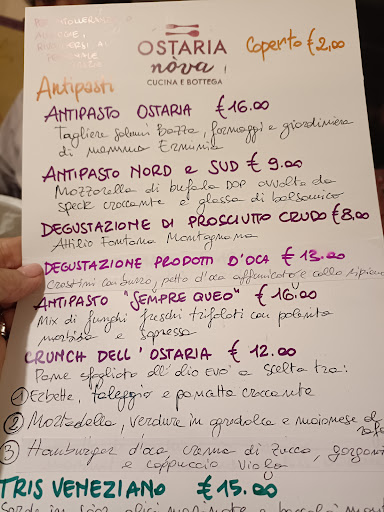 OSTARIA
nòva
CUCINA E BOTTEGA
Coperto € 2,00
Antipasti
ANTIPASTO OSTARIA € 16.00
Tagliere salumi Bazza, formaggi e giardiniera
di mamma Erminia
ANTIPASTO NORD e SUD € 9.00
Mozzarella di bufala DOP avvolta da
speck croccante e glassa di balsamico
DEGUSTAZIONE DI PROSCIUTTO CRUDO € 8,00
Attilio Fontana Montagnana
DEGUSTAZIONE PRODOTTI D'OCA € 13.00
crostini con burro, petto d'oca affumicato e collo ripieno
ANTIPASTO "SEMPRE QUEO" € 16.00
Mix di funghi freschi trifolati con polenta
morbida e sopressa
CRUNCH DELL'OSTARIA € 12.00
Pane sfogliato all'olio EVO a scelta tra:
1 Erbette, taleggio e pancetta croccante
2 Mortadella, verdure in agrodolce e maionese
3 Hamburger d'oca, crema di zucca,
e cappuccio viola
TRIS VENEZIANO € 15.00